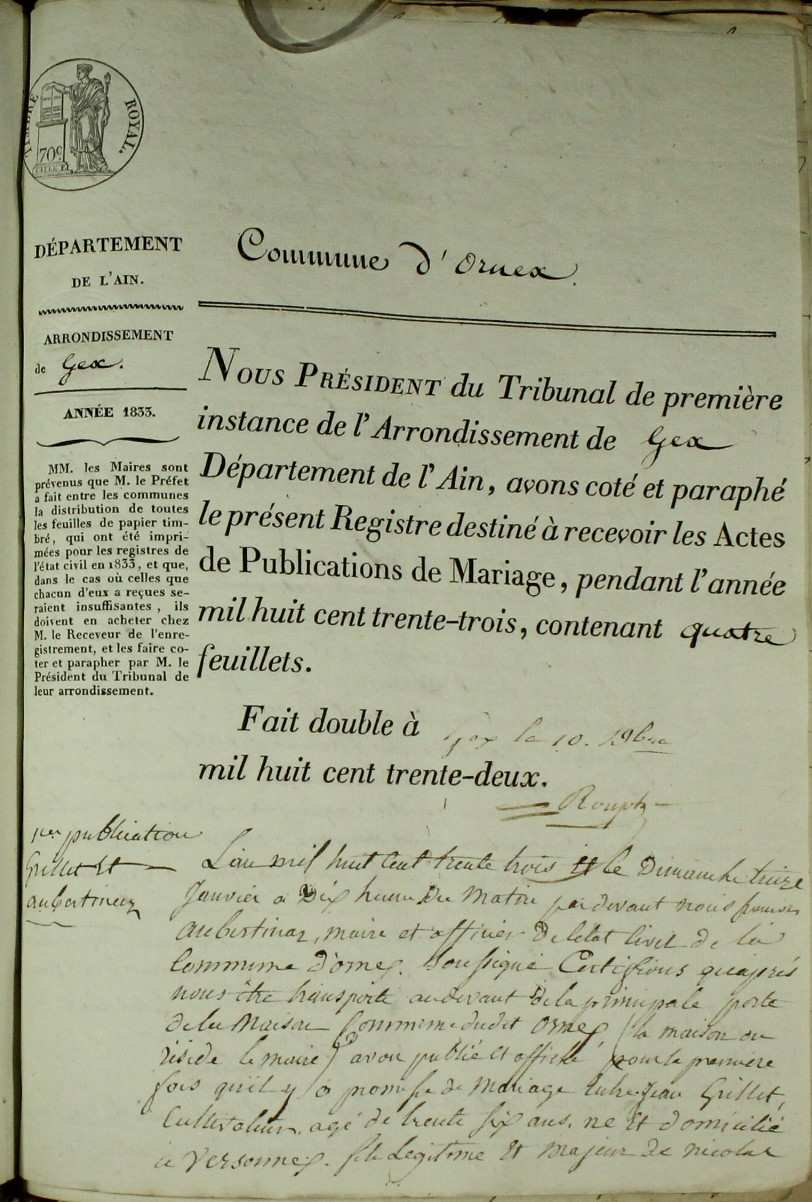 TIMBRE ROYAL.
70c
DÉPARTEMENT
DE L'AIN.
ARRONDISSEMENT
de Gex.
ANNÉE 1833.
MM. les Maires sont
prévenus que M. le Préfet
a fait entre les communes
la distribution de toutes
les feuilles de papier tim-
bré, qui ont été impri-
mées pour les registres de
l'état civil en 1833, et que,
dans le cas où celles que
chacun d'eux a reçues se-
raient insuffisantes, ils
doivent en acheter chez
M. le Receveur de l'enre-
gistrement, et les faire co-
ter et parapher par M. le
Président du Tribunal de
leur arrondissement.
Commune d'Ornex.
NOUS PRÉSIDENT du Tribunal de première
instance de l'Arrondissement de Gex
Département de l'Ain, avons coté et paraphé
le présent Registre destiné à recevoir les Actes
de Publications de Mariage, pendant l'année
mil huit cent trente-trois, contenant quatre
feuillets.
Fait double à Gex le 10. Xbre
mil huit cent trente-deux.
1ere publication
Grillet Et
aubertinaz
L'an mil huit cent trente trois et le Dimanche treize
Janvier a Dix heure Du Matin par devant nous
aubertinaz, maire et officier De letat Civil de la
Commune D'ornex. Soussigné Certifions qu'après
nous être transporté au devant De la principale porte
de la Maison Commune dudit Ornex (la maison ou
réside le maire) avon publié et affiché pour la premiere
fois qu'il y a promesse de Mariage Entre Jean Grillet,
Cultivateur, agé de trente six ans. né Et domicilié
a Versonnex. fils Legitime Et Majeur de nicolas